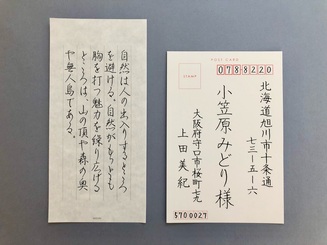 自然は人の出入りするところ
を避ける。自然がもっとも
胸を打つ魅力を繰り広げる
ところは、山の頂や森の奥
や無人島である。
POST CARD
STAMP
0788220
北海道旭川市十条通
七三-五-六
小笠原みどり様
大阪府守口市桜町七九
上田美紀
5700027